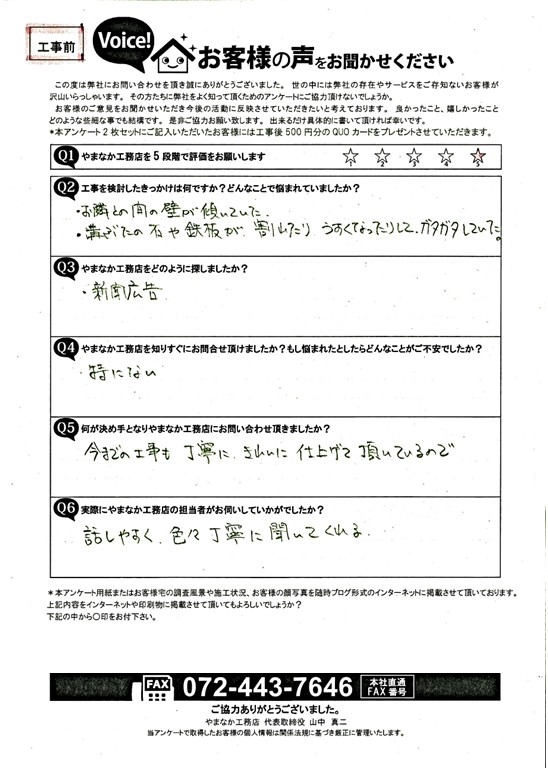 工事前
Voice!
お客様の声をお聞かせください
この度は弊社にお問い合わせを頂き誠にありがとうございました。世の中には弊社の存在やサービスをご存知ないお客様が
沢山いらっしゃいます。その方たちに弊社をよく知って頂くためのアンケートにご協力頂けないでしょうか。
お客様のご意見をお聞かせいただき今後の活動に反映させていただきたいと考えております。良かったこと、嬉しかったこと
どのような些細な事でも結構です。是非ご協力お願い致します。出来るだけ具体的に書いて頂ければ幸いです。
*本アンケート2枚セットにご記入いただいたお客様には工事後500円分のQUOカードをプレゼントさせていただきます。
Q1 やまなか工務店を5段階で評価をお願いします
1 2 3 4 5
Q2 工事を検討したきっかけは何ですか?どんなことで悩まれていましたか?
・お隣との間の壁が傾いていた.
・溝ぶたの石や鉄板が、割れたり うすくなったりして、ガタガタしていた。
Q3 やまなか工務店をどのように探しましたか?
・新聞広告
Q4 やまなか工務店を知りすぐにお問合せ頂けましたか?もし悩まれたとしたらどんなことがご不安でしたか?
・特にない
Q5 何が決め手となりやまなか工務店にお問い合わせ頂きましたか?
今までの工事も 丁寧に、きれいに 仕上げて 頂いているので
Q6 実際にやまなか工務店の担当者がお伺いしていかがでしたか?
話しやすく、色々丁寧に聞いてくれる.
*本アンケート用紙またはお客様宅の調査風景や施工状況、お客様の顔写真を随時ブログ形式のインターネットに掲載させて頂いております。
上記内容をインターネットや印刷物に掲載させて頂いてもよろしいでしょうか?
下記の中から○印をお付下さい。
FAX 072-443-7646 本社直通
FAX番号
ご協力ありがとうございました。
やまなか工務店 代表取締役 山中 真二
当アンケートで取得したお客様の個人情報は関係法規に基づき厳正に管理いたします。